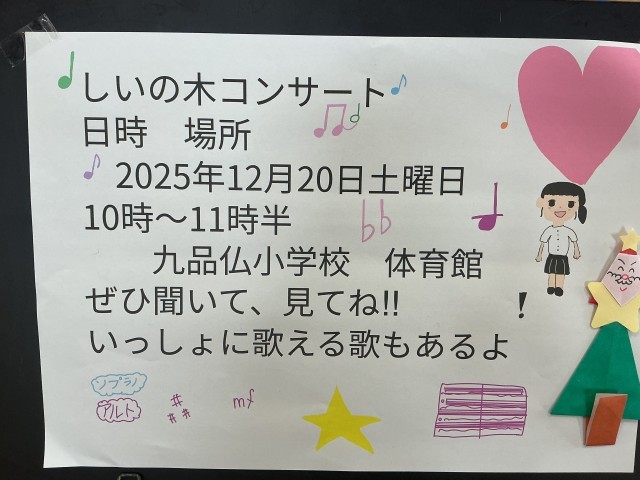 しいの木コンサート
日時　場所
2025年12月20日土曜日
10時～11時半
九品仏小学校　体育館
ぜひ聞いて、見てね!!　！
いっしょに歌える歌もあるよ
ソプラノ
アルト
mf